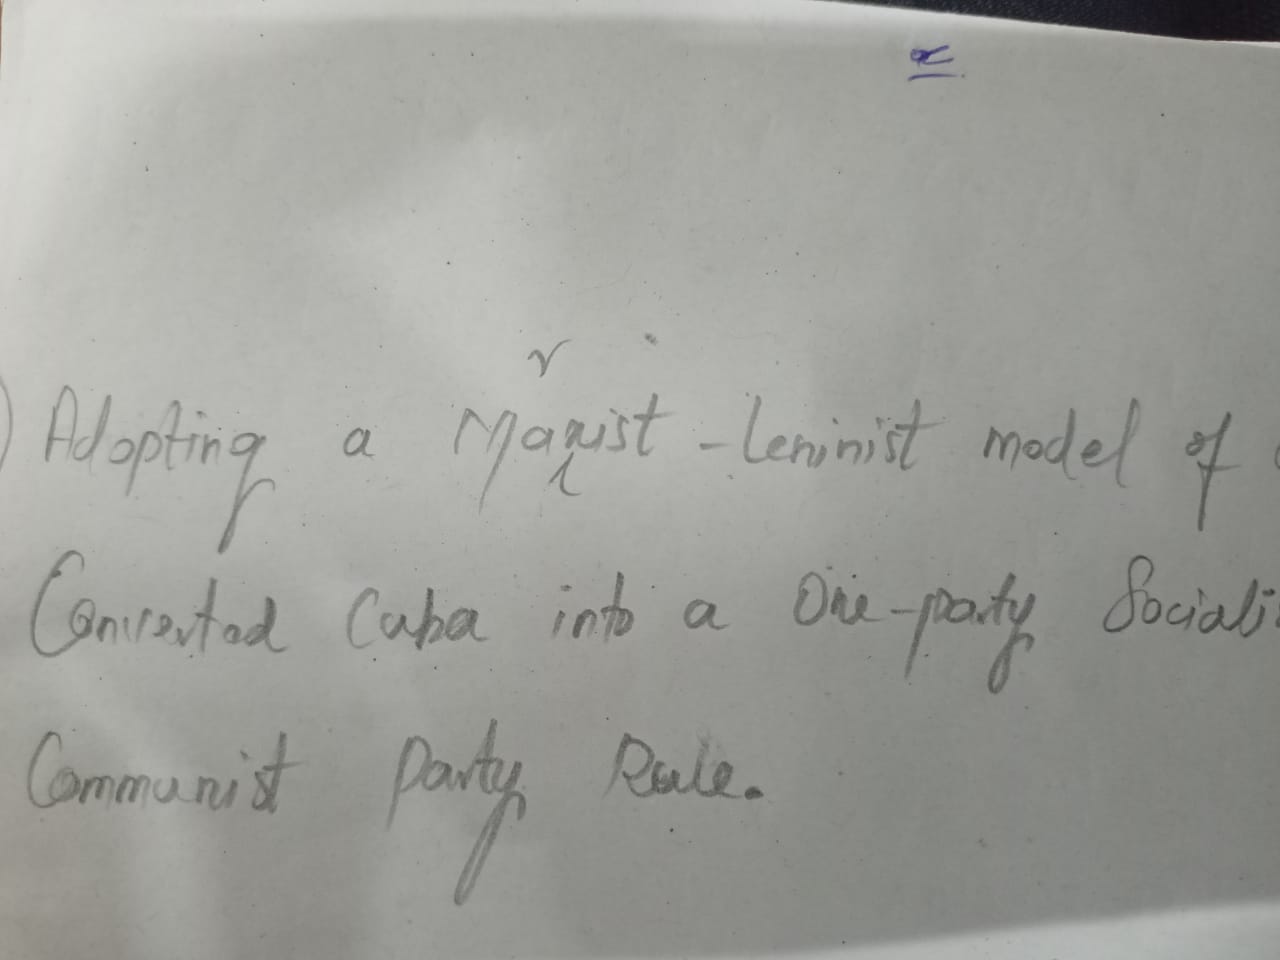 ) Adopting a Marxist-Leninist model of
Converted Cuba into a One-party Sociali
Communist Party Rule.